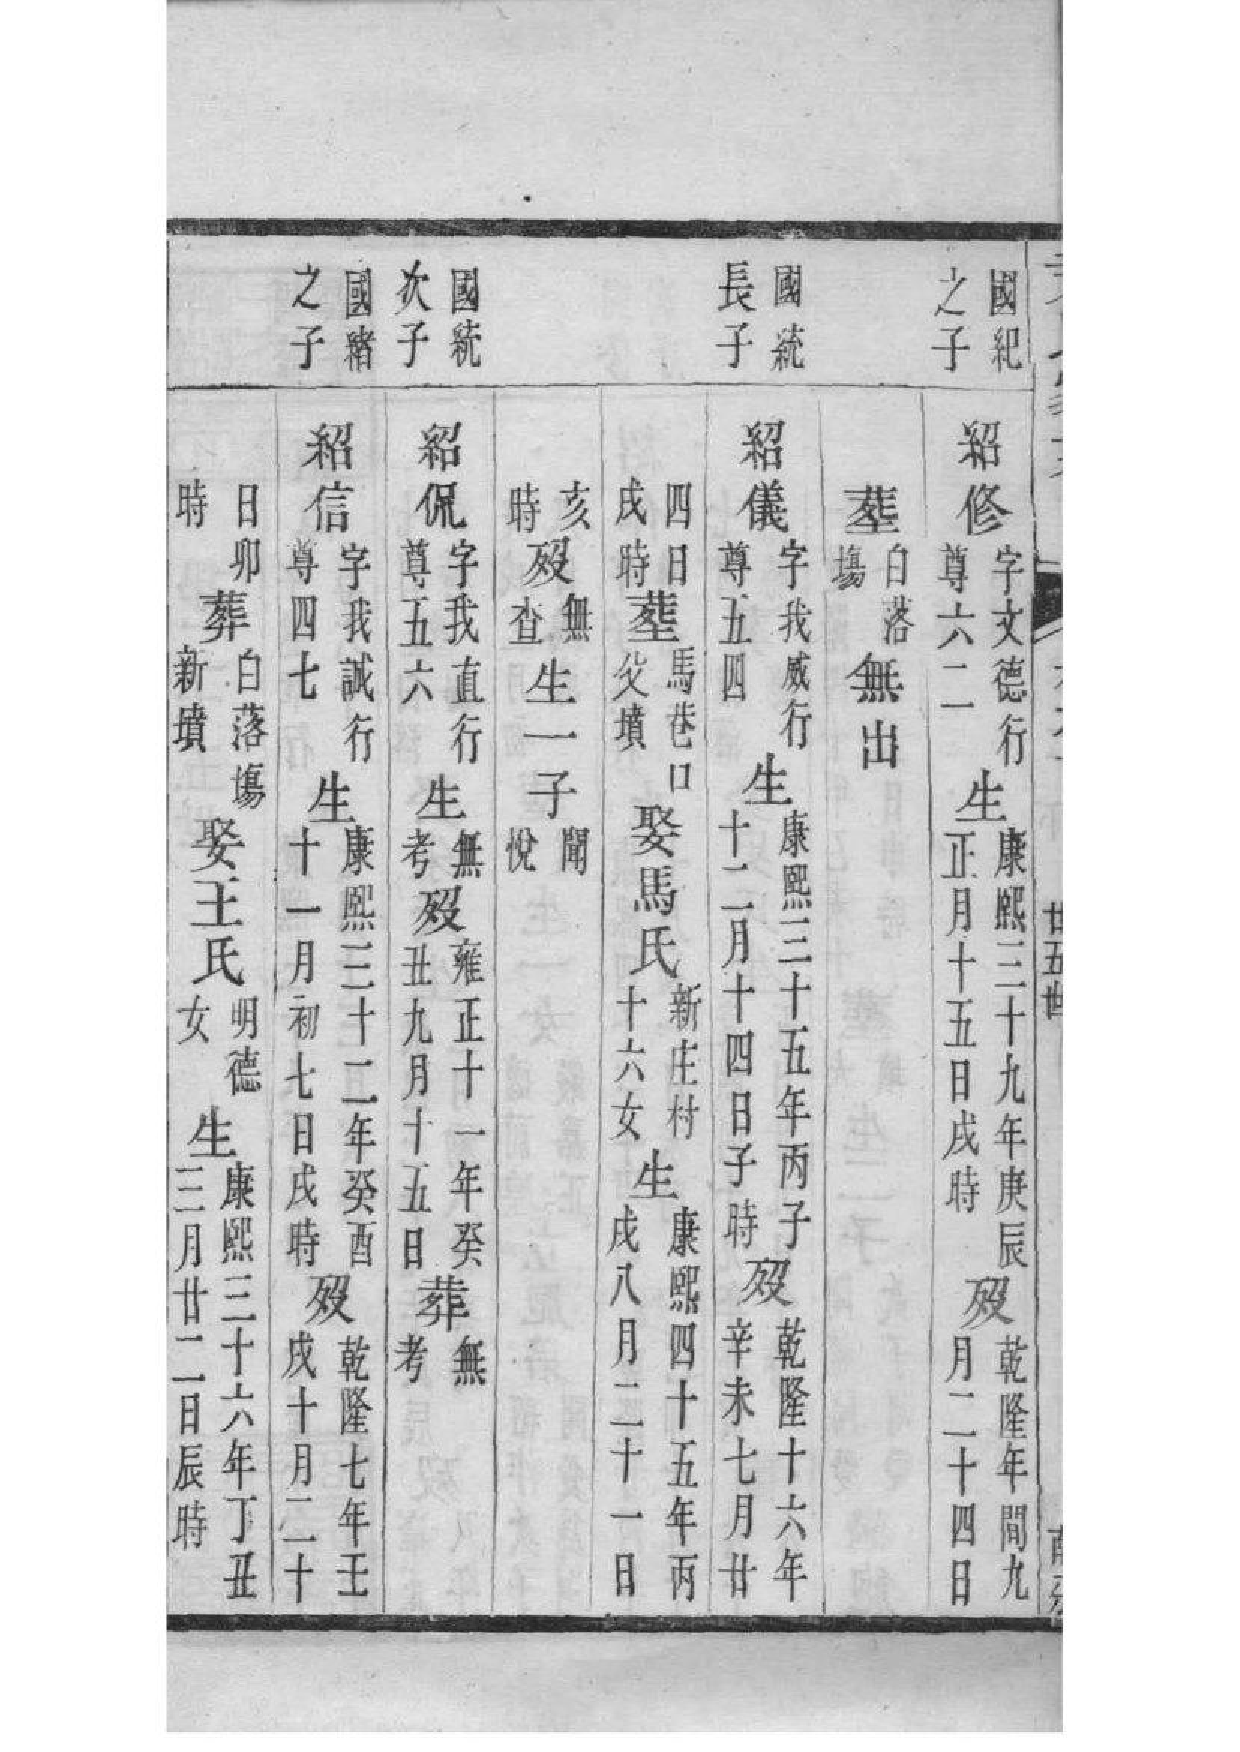 廿五世
國紀
之子
紹修
字文德行
尊六二
生
康熙三十九年庚辰
正月十五日戌時
歿
乾隆年間九
月二十四日
葬
白落
塲
無出
國統
長子
紹儀
字我威行
尊五四
生
康熙三十五年丙子
十二月十四日子時
歿
乾隆十六年
辛未七月廿
四日
戌時
葬
馬巷口
父墳
娶馬氏
新庄村
十六女
生
康熙四十五年丙
戌八月二十一日
亥
時
歿
無
查
生一子
聞
悅
國統
次子
紹侃
字我直行
尊五六
生
無
考
歿
雍正十一年癸
丑九月十五日
葬
無
考
國緒
之子
紹信
字我誠行
尊四七
生
康熙三十二年癸酉
十一月初七日戌時
歿
乾隆七年壬
戌十月二十
日卯
時
葬
白落塲
新墳
娶王氏
明德
女
生
康熙三十六年丁丑
三月廿二日辰時